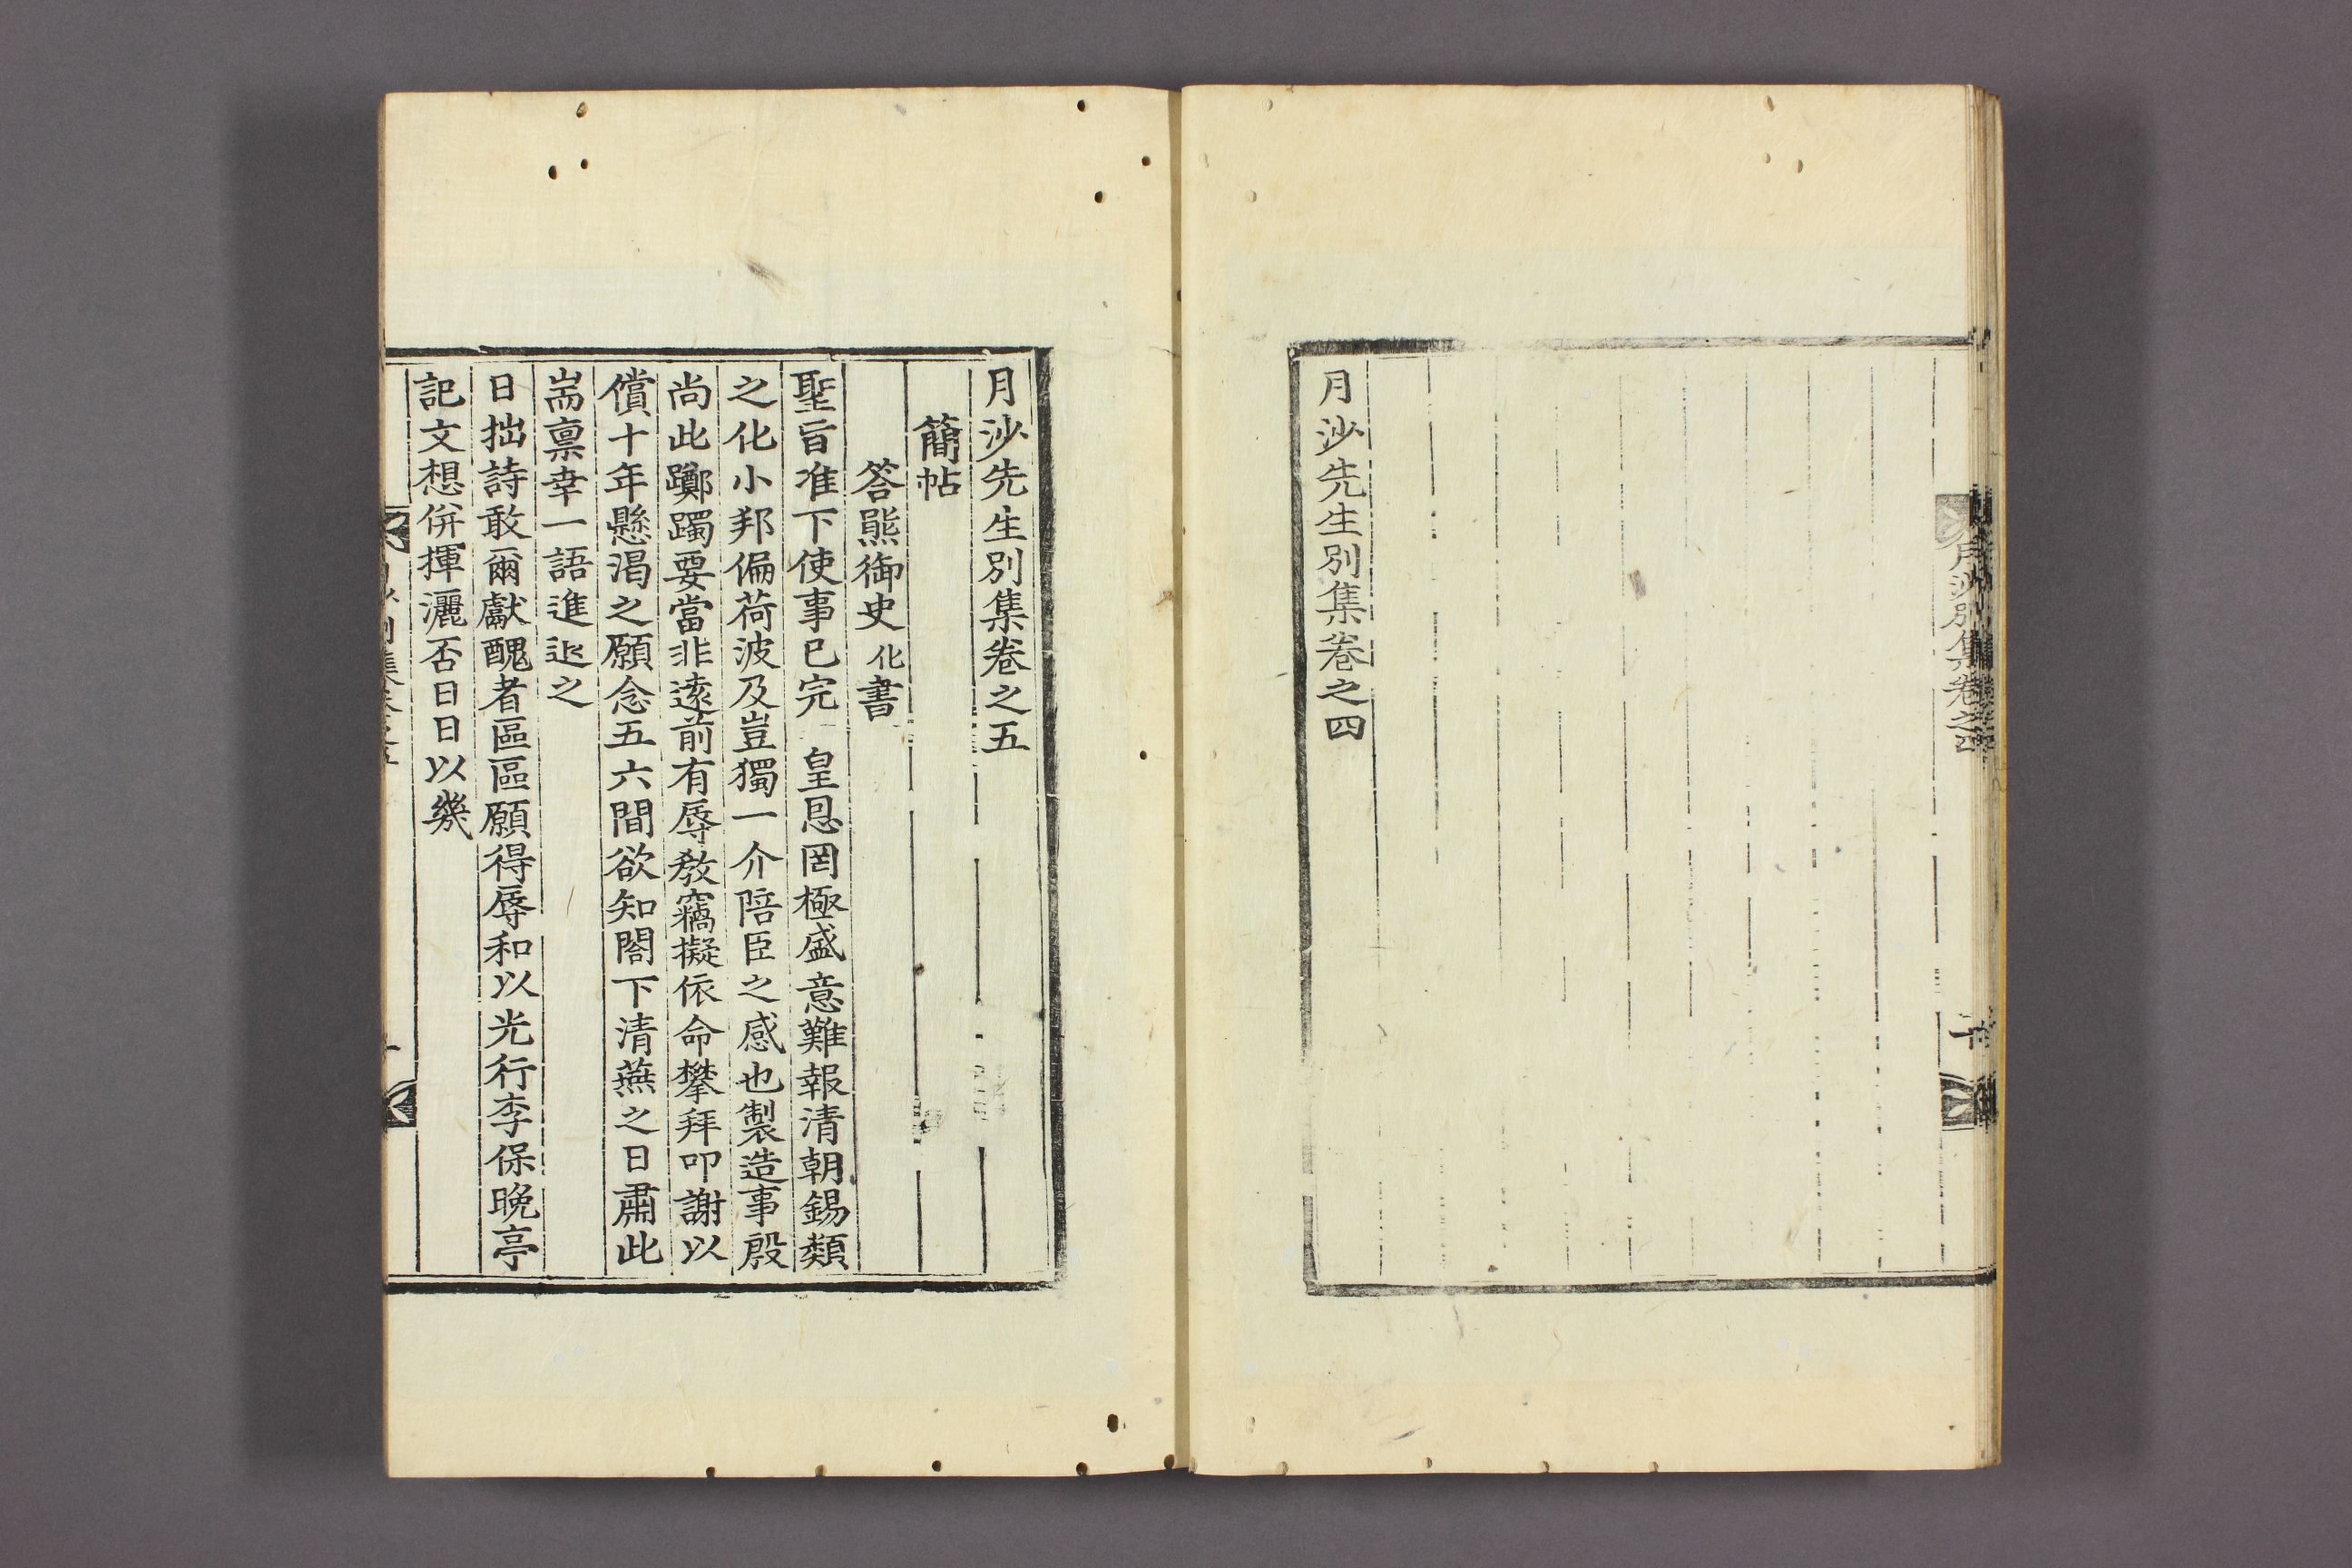 月沙別集卷之四
月沙先生別集卷之四
月沙先生別集卷之五
簡帖
答熊御史化書
聖旨准下使事已完 皇恩罔極盛意難報清朝錫類
之化小邦偏荷波及豈獨一介陪臣之感也製造事殷
尚此躑躅要當非遠前有辱教竊擬依命攀拜叩謝以
償十年懸渴之願念五六間欲知閤下清燕之日肅此
耑稟幸一語進退之
日拙詩敢爾獻醜者區區願得辱和以光行李保晚亭
記文想併揮灑否日日以幾